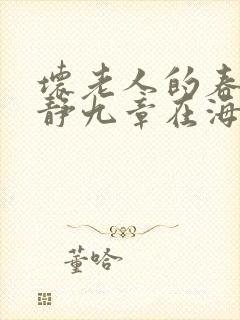 壞老人的春
靜九章在海
董哈